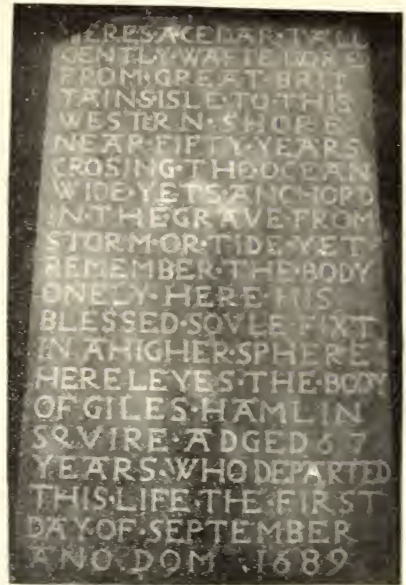 HERES·A·CEDAR·TALL
GENTLY·WAFTED·ORE
FROM·GREAT·BRIT
TAINS·ISLE·TO·THIS
WESTERN·SHORE
NEAR·FIFTY·YEARS
CROSING·THE·OCEAN
WIDE·YETS·ANCHORD
IN·THE·GRAVE·FROM
STORM·OR·TIDE·YET
REMEMBER·THE·BODY
ONELY·HERE·HIS
BLESSED·SOVLE·FIXT
IN·A·HIGHER·SPHERE
HERE LEYES·THE·BODY
OF GILES·HAMLIN
SQVIRE·ADGED 67
YEARS·WHO DEPARTED
THIS·LIFE·THE·FIRST
DAY·OF·SEPTEMBER
ANO·DOM·1689